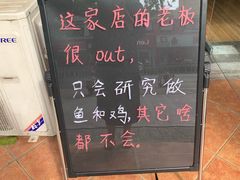 这家店的老板
很out,
只会研究做
鱼和鸡,其它啥
都不会.